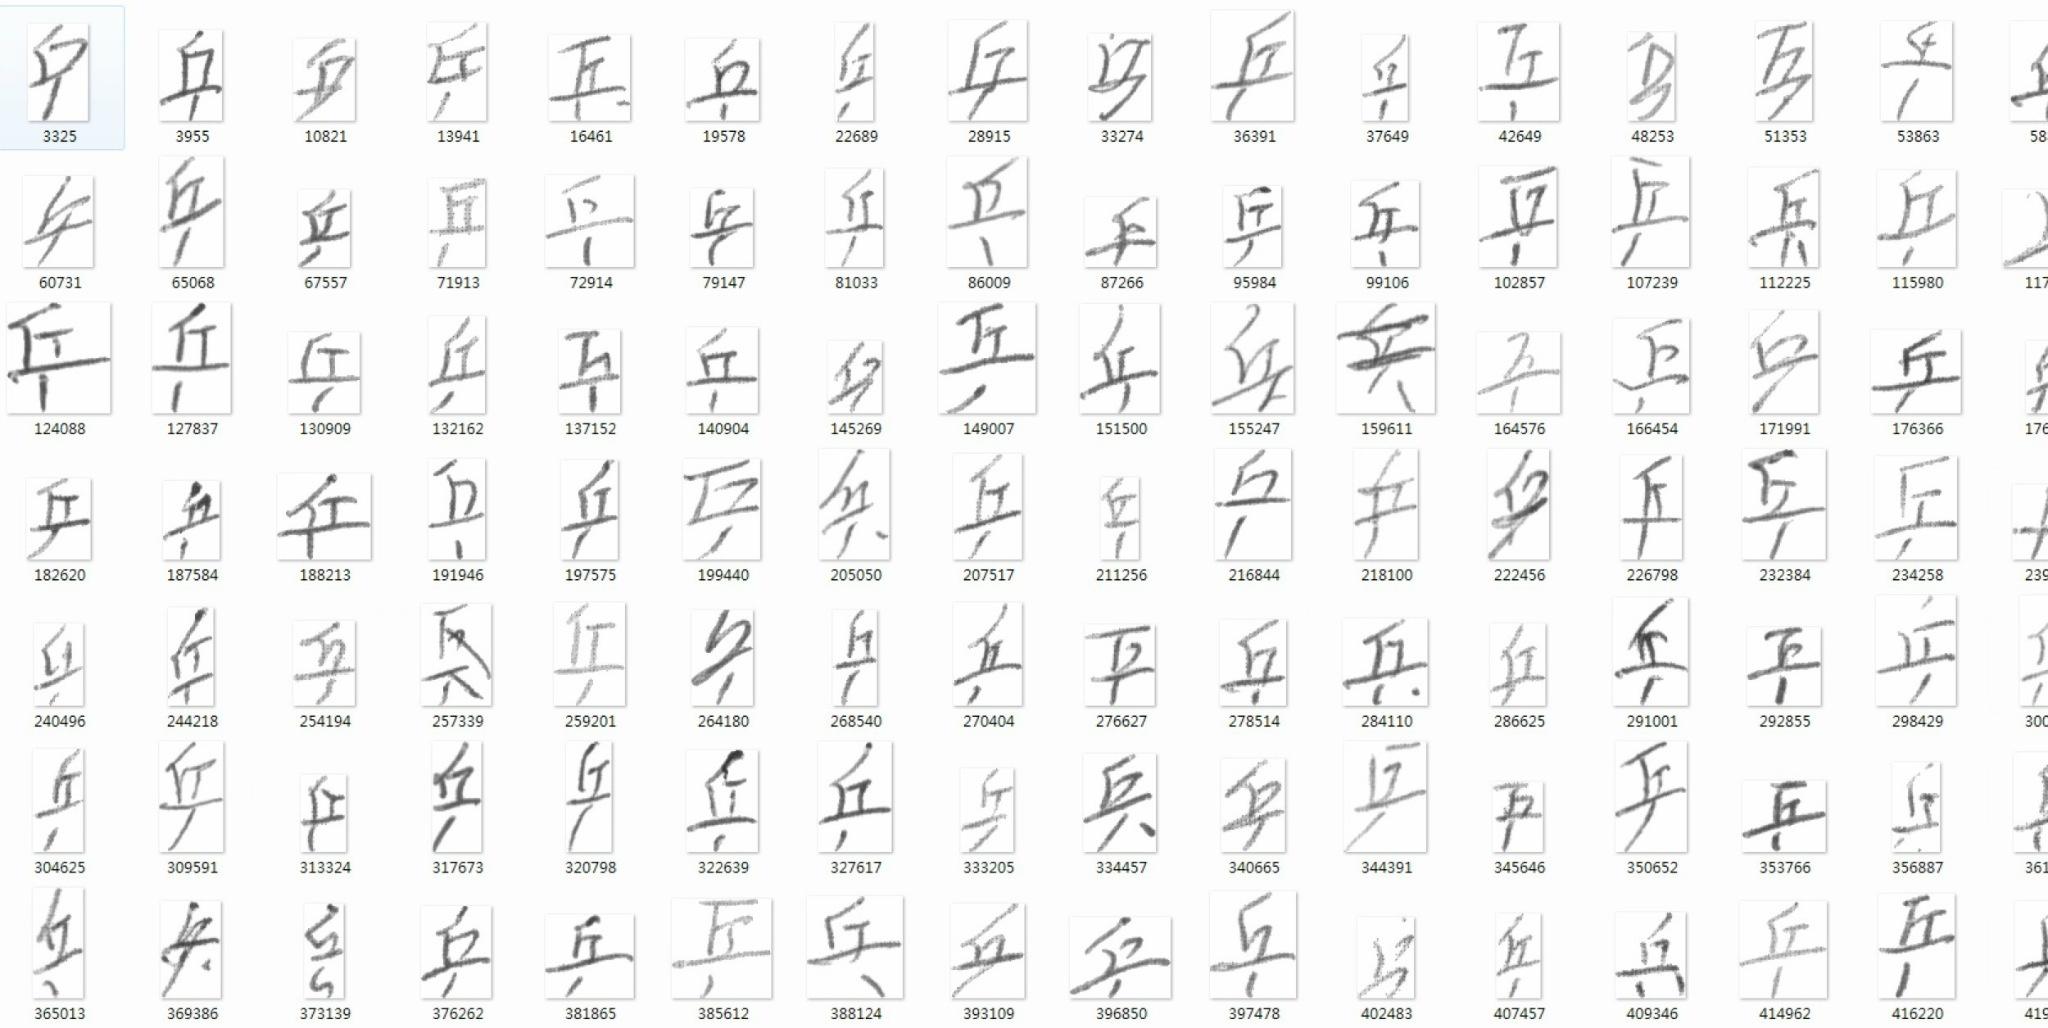 乒 乒 乒 乒 乒 乒 乒 乒 乒 乒 乒 乒 乒 乒 乒
3325 3955 10821 13941 16461 19578 22689 28915 33274 36391 37649 42649 48253 51353 53863
乒 乒 乒 乒 乒 乒 乒 乓 乒 乒 乒 乒 乒 兵 乒
60731 65068 67557 71913 72914 79147 81033 86009 87266 95984 99106 102857 107239 112225 115980
乒 乒 乒 乒 乒 乒 乒 乒 乒 兵 兵 乒 乒 乒 乒
124088 127837 130909 132162 137152 140904 145269 149007 151500 155247 159611 164576 166454 171991 176366
乒 乒 乒 乒 乒 乒 兵 乒 乒 乒 乒 乒 乒 乒 乒
182620 187584 188213 191946 197575 199440 205050 207517 211256 216844 218100 222456 226798 232384 234258
乒 乒 乒 兵 乒 乒 乒 乒 乒 乒 兵 乒 乒 乒 乒
240496 244218 254194 257339 259201 264180 268540 270404 276627 278514 284110 286625 291001 292855 298429
乒 乒 乒 乒 乒 乒 乒 乒 兵 乒 乒 乒 乒 乒 乒
304625 309591 313324 317673 320798 322639 327617 333205 334457 340665 344391 345646 350652 353766 356887
乓 兵 乒 乒 乒 乒 乓 乒 乒 乒 乒 乒 兵 乒 乒
365013 369386 373139 376262 381865 385612 388124 393109 396850 397478 402483 407457 409346 414962 416220